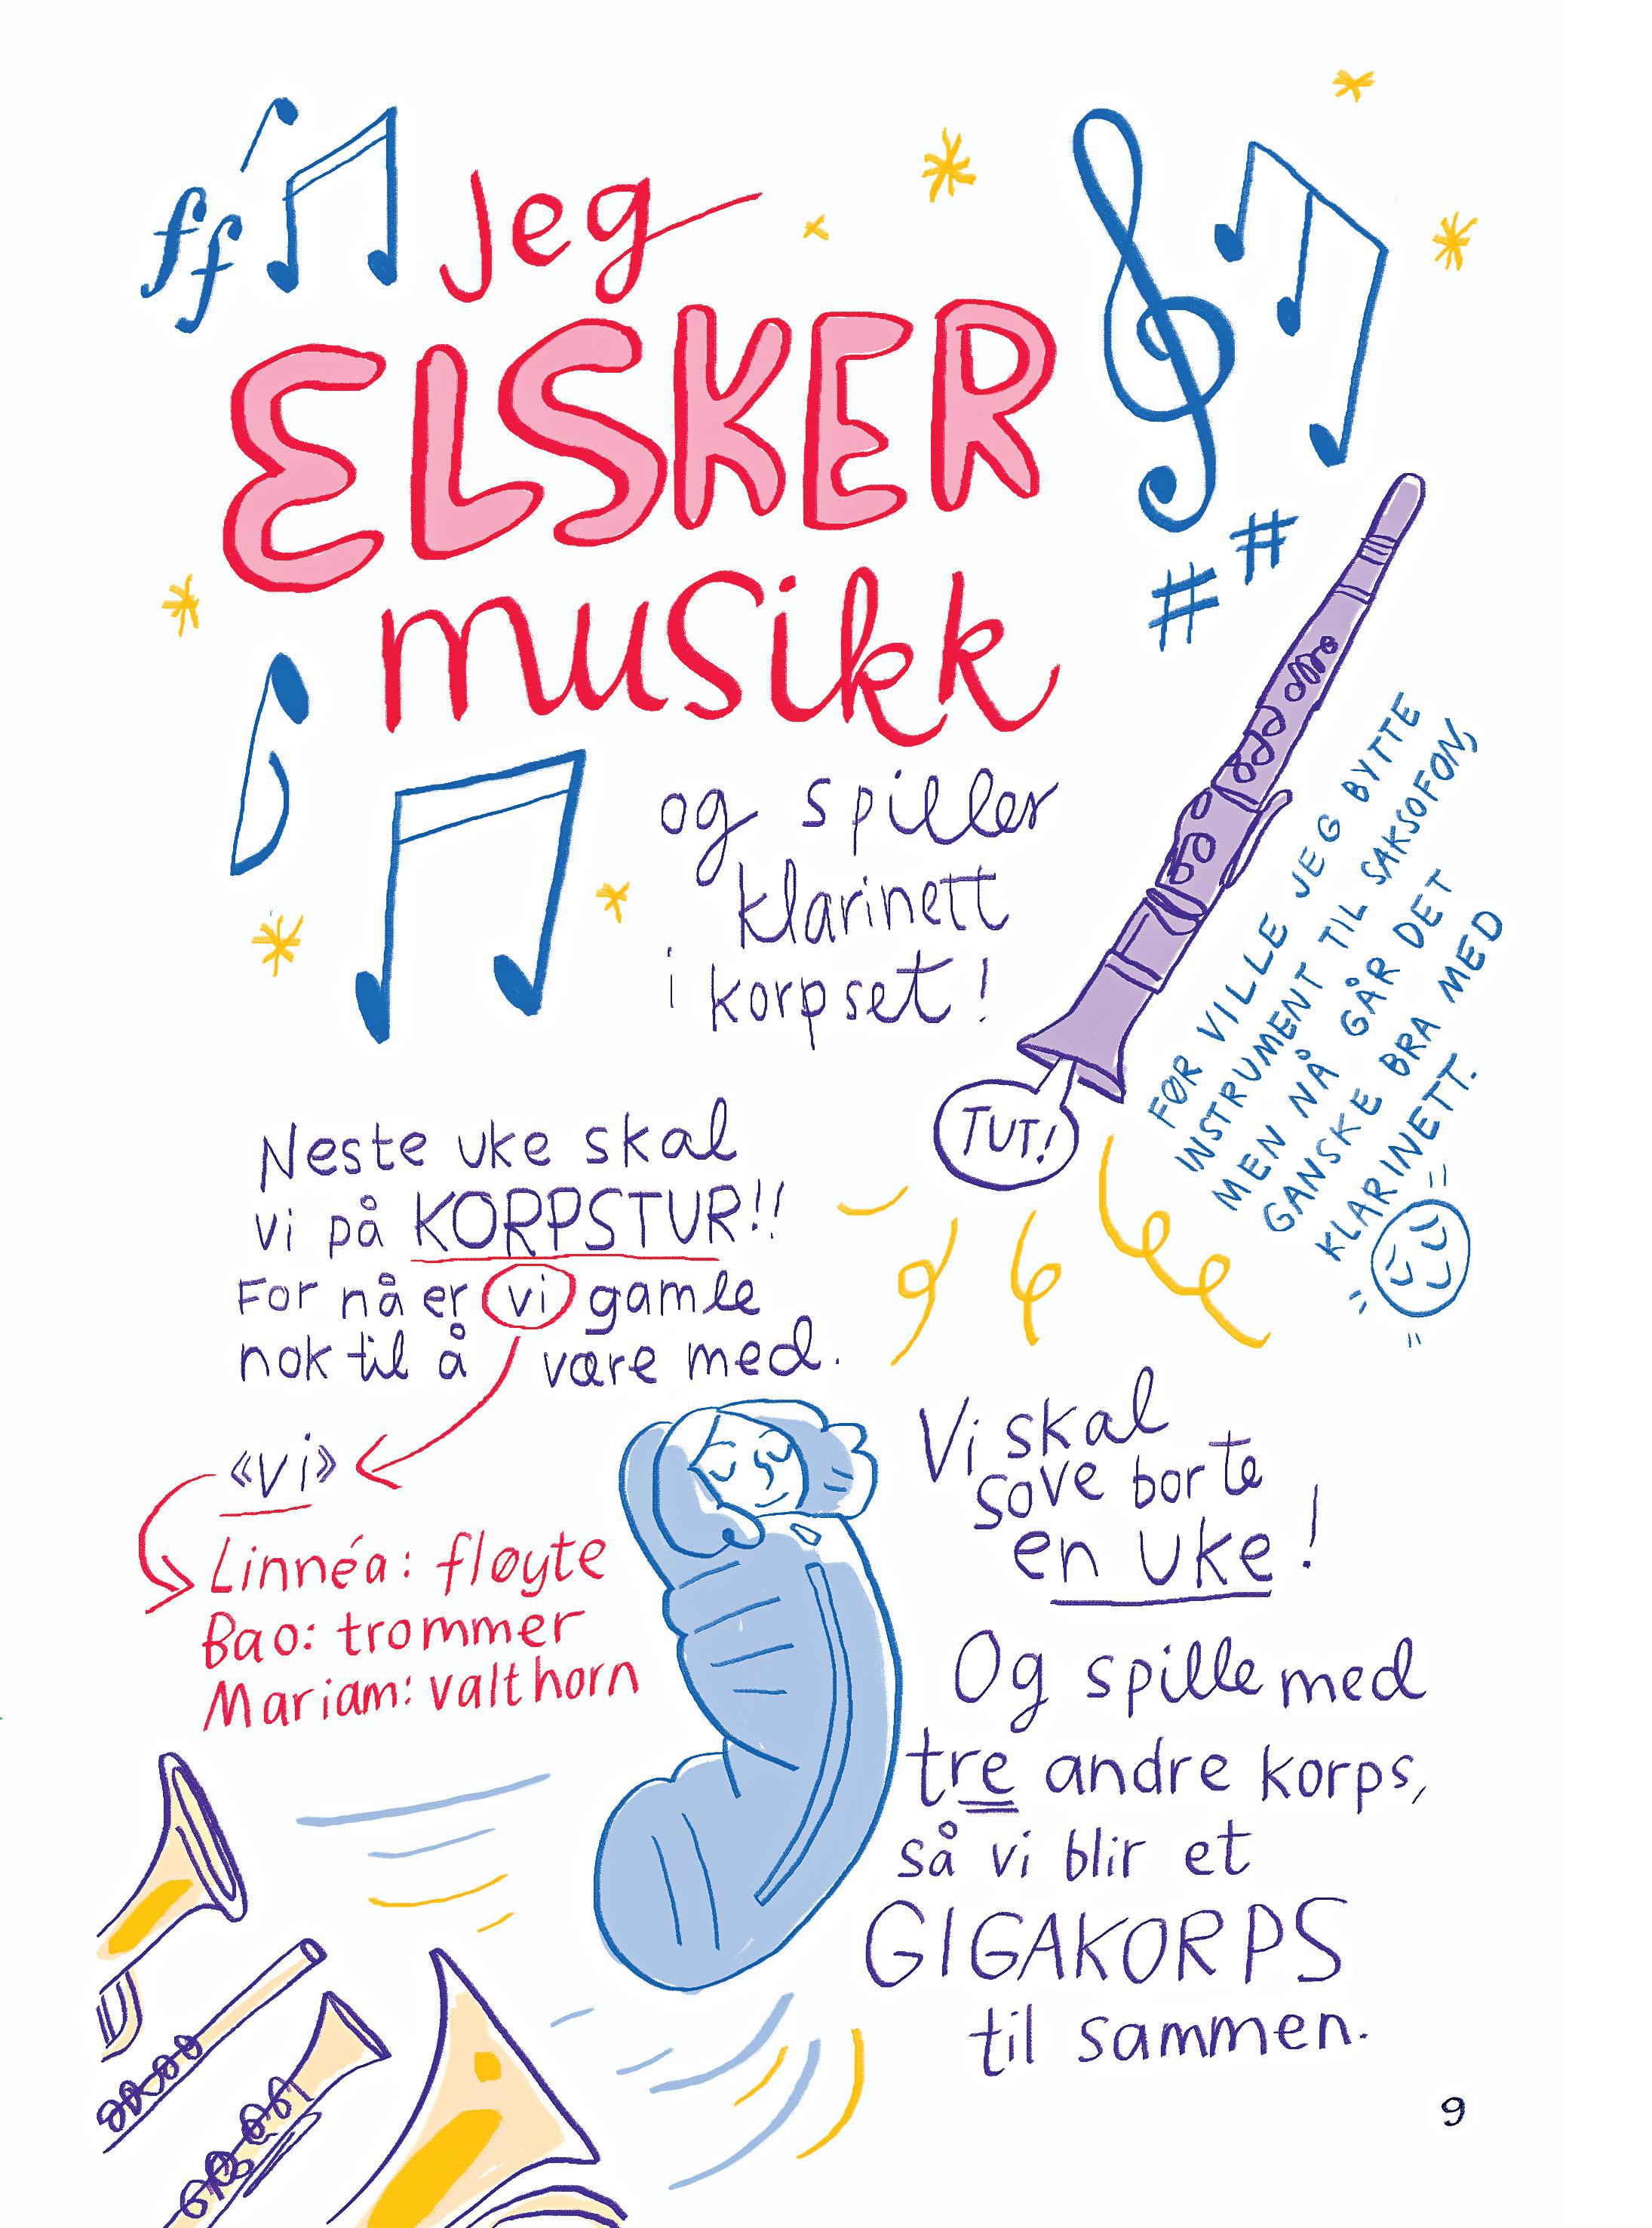 ff
Jeg
ELSKER
musikk
og spiller
klarinett
i korpset!
TUT!
FØR VILLE JEG BYTTE
INSTRUMENT TIL SAKSOFON,
MEN NÅ GÅR DET
GANSKE BRA MED
KLARINETT.
Neste uke skal
vi på KORPSTUR!!
For nå er vi gamle
nok til å være med.
«Vi»
Linnéa: fløyte
Bao: trommer
Mariam: valthorn
Vi skal
sove borte
en uke!
Og spille med
tre andre korps,
så vi blir et
GIGAKORPS
til sammen.
9